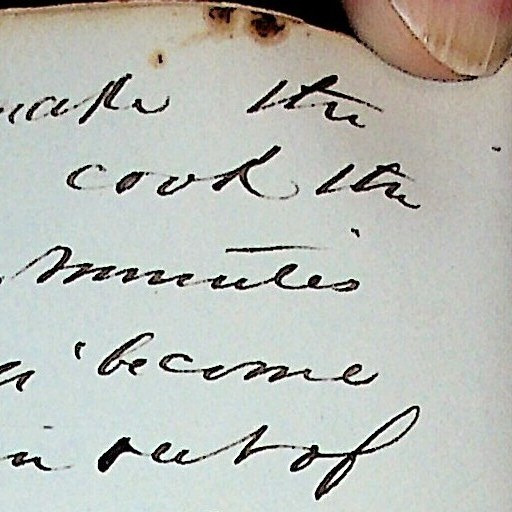 make the
cook the
minutes
become
out of